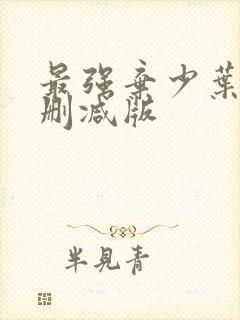 最强弃少葉
删减版
半見青